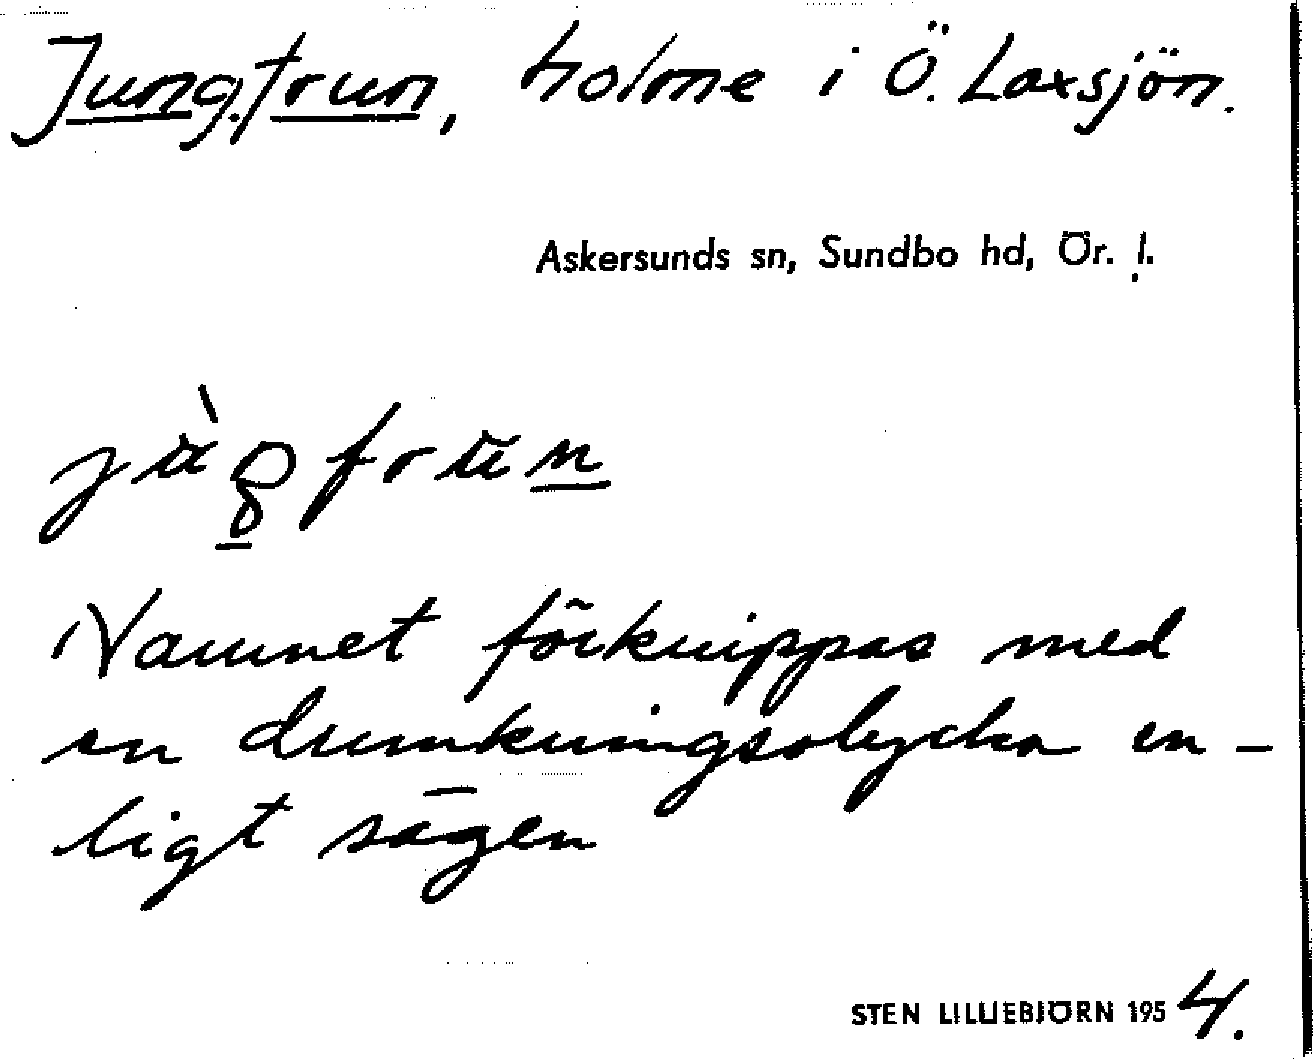 Jungfrun, holme i Ö. Laxsjön.
Askersunds sn, Sundbo hd, Ör. l.
Namnet förknippas med
en drunkningsolycka en-
ligt sägen
STEN LILLIEBJÖRN 1954.